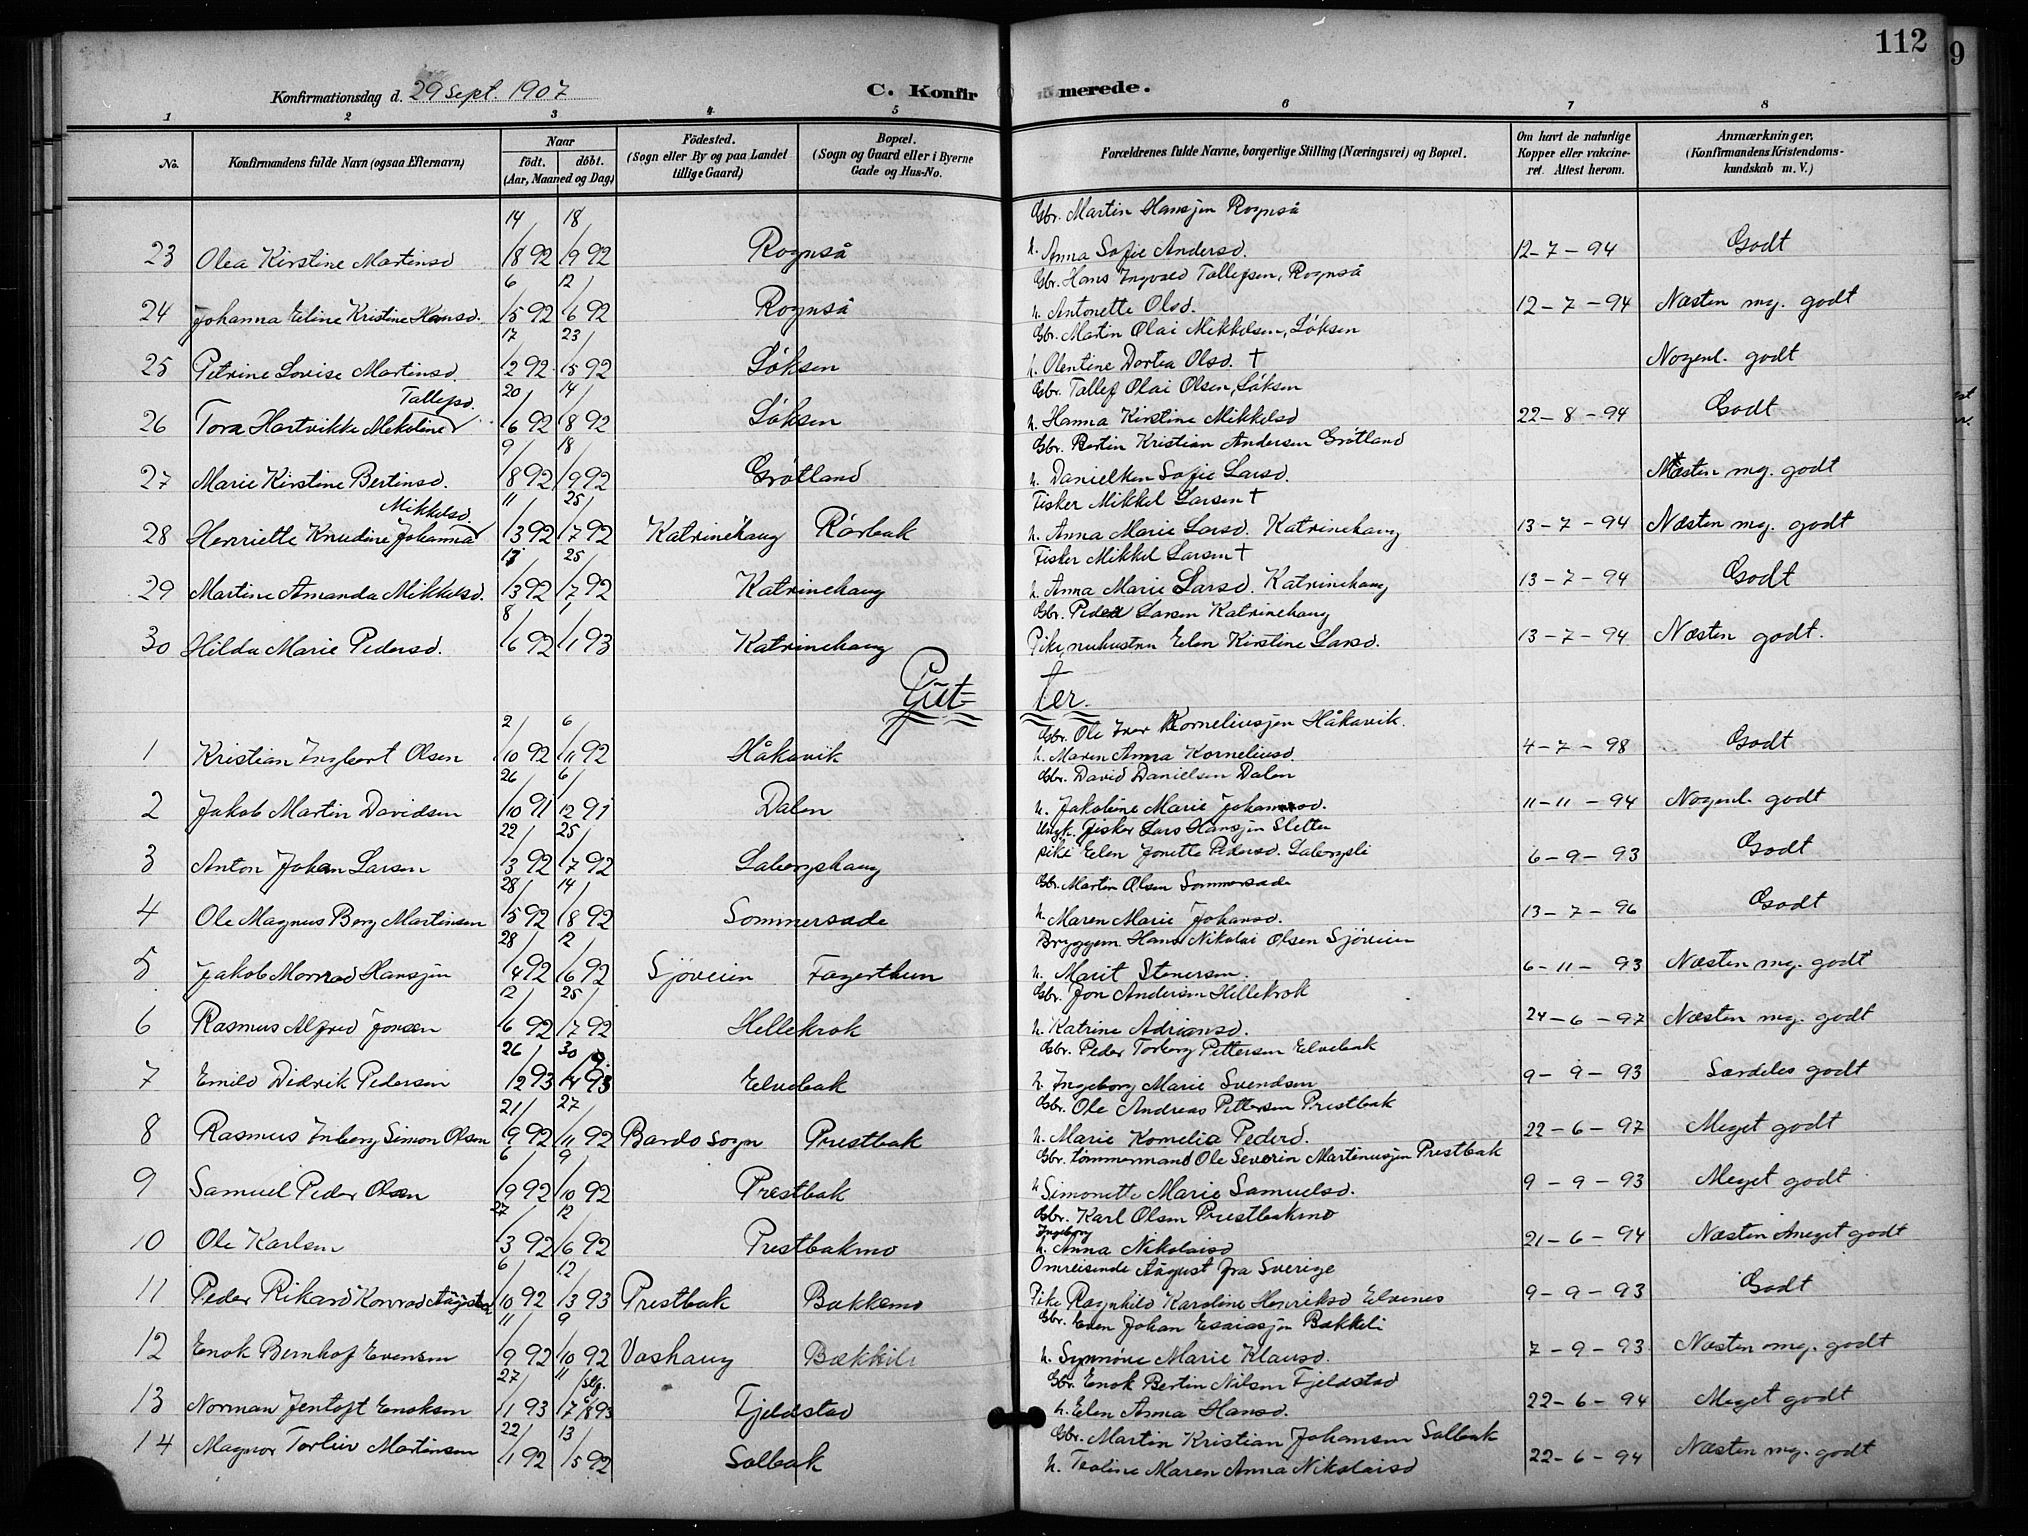 112
9
Konfirmationsdag d. 29 Sept. 1907
C. Konfirmerede.
1 2 3 4 5 6 7 8
No. Konfirmandens fulde Navn (ogsaa Efternavn) Naar født. døbt. (Aar, Maaned og Dag) Födested. (Sogn eller By og paa Landet tillige Gaard) Bopæl. (Sogn og Gaard eller i Byerne Gade og Hus-No. Forældrenes fulde Navne, borgerlige Stilling (Næringsvei) og Bopæl. Om havt de naturlige Kopper eller vakcineret. Attest herom. Anmærkninger, (Konfirmandens Kristendomskundskab m. V.)
14 18 Gbr. Martin Hansjen Rognså
23 Olea Kirstine Martinsd 18 92 19 92 Rognså h. Anna Sofie Andersd. 12-7-94 Godt
6 12 Gbr. Hans Ingvald Tallefsen, Rognså
24 Johanna Eline Kristine Hansd. 15 92 16 92 Rognså h. Antonette Olsd. 12-7-94 Næsten mg. godt
17 23 Gbr. Martin Olai Mikkelsen, Löksen
25 Petrine Lovise Martinsd. 12 92 15 92 Löksen h. Olentine Dortea Olsd. † Nogenl. godt
Tallefsd. 20 14 Gbr. Tallef Olai Olsen, Löksen
26 Tora Hartvikke Mekeline 16 92 18 92 Löksen h. Hanna Kirstine Mikkelsd 22-8-94 Godt
9 18 Gbr. Bertin Kristian Andersen Grötland
27 Marie Kirstine Bertinsd. 18 92 19 92 Grötland h. Danielken Sofie Larsd. Næsten mg. godt
Mikkelsd. 11 25 Fisker Mikkel Larsen †
28 Henriette Knudine Johanna 13 92 17 92 Katrinehaug Rörbak h. Anna Marie Larsd. Katrinehaug 13-7-94 Næsten mg. godt
13 25 Fisker Mikkel Larsen †
29 Martine Amanda Mikkelsd. 13 92 17 92 Katrinehaug h. Anna Marie Larsd. Katrinehaug 13-7-94 Godt
8 1 Gbr. Peder Larsen Katrinehaug
30 Hilda Marie Pedersd. 16 92 11 93 Katrinehaug Pike, nu hustru Elen Kirstine Larsd. 13-7-94 Næsten godt.
Gut- ter.
2 6 Gbr. Ole Ivar Korneliusjen Håkavik.
1 Kristian Ingbert Olsen 10 92 11 92 Håkavik h. Maren Anna Korneliusd. 4-7-98 Godt
26 6 Gbr. David Danielsen Dalen
2 Jakob Martin Davidsen 10 91 12 91 Dalen h. Jakobine Marie Johannsd. 11-11-94 Nogenl. godt
22 25 Ungk. fisker Lars Hansjen Sletten
3 Anton Johan Larsen 13 92 17 92 Labergshaug pike Elen Jonette Pedersd. Labergsli 6-9-93 Godt
28 14 Gbr. Martin Olsen Sommersæde
4 Ole Magnus Berg Martinsen 15 92 18 92 Sommersæde h. Maren Marie Johansd. 13-7-96 Godt
28 12 Bryggem. Hans Nikolai Olsen Sjöveien
5 Jakob Monrad Hansjen 14 92 16 92 Sjöveien Fagertun h. Marit Stenersen. 6-11-93 Næsten mg. godt
12 25 Gbr. Jon Andersen Hellekrok
6 Rasmus Alfred Jonsen 16 92 17 92 Hellekrok h. Katrine Adriansd. 24-6-97 Næsten mg. godt
26 30 Gbr. Peder Torberg Pettersen Elvebak
7 Emild Didrik Pedersen 12 93 14 93 Elvebak h. Ingeborg Marie Svendsen 9-9-93 Særdeles godt
21 27 Gbr. Ole Andreas Pettersen Prestbak
8 Rasmus Inberg Simon Olsen 19 92 11 92 Bardo sogn Prestbak h. Marie Kornelia Pedersd. 22-6-97 Meget godt
6 9 Gbr. tømmermand Ole Severin Martinusjen Prestbak
9 Samuel Peder Olsen 19 92 10 92 Prestbak h. Simonette Marie Samuelsd. 9-9-93 Meget godt
27 12 Gbr. Karl Olsen Prestbakmo
10 Ole Karlsen 13 92 16 92 Prestbakmo Ingeborg h. Anna Nikolaisd 21-6-94 Næsten meget godt
6 12 Omreisende August fra Sverige
11 Peder Rikard Konrad Augustsen 10 92 13 93 Prestbak Bakkemo Pike Ragnhild Karoline Henriksd Elvenes 9-9-93 Godt
11 9 Gbr. Even Johan Esaiasjen Bækkeli
12 Enok Bernhof Evensen 19 92 10 92 Vashaug Bækkeli h. Synnöve Marie Klausd. 7-9-93 Næsten mg. godt
27 11 Gbr. Enok Bertin Nilsen Fjeldstad
13 Norman Jentoft Enoksen 11 93 17 93 Fjeldstad h. Elen Anna Hansd. 22-6-94 Meget godt
22 13 Gbr. Martin Kristian Johansen Solbak
14 Magnor Torleiv Martinsen 11 92 15 92 Solbak h. Teoline Maren Anna Nikolaisd 22-6-94 Næsten mg. godt